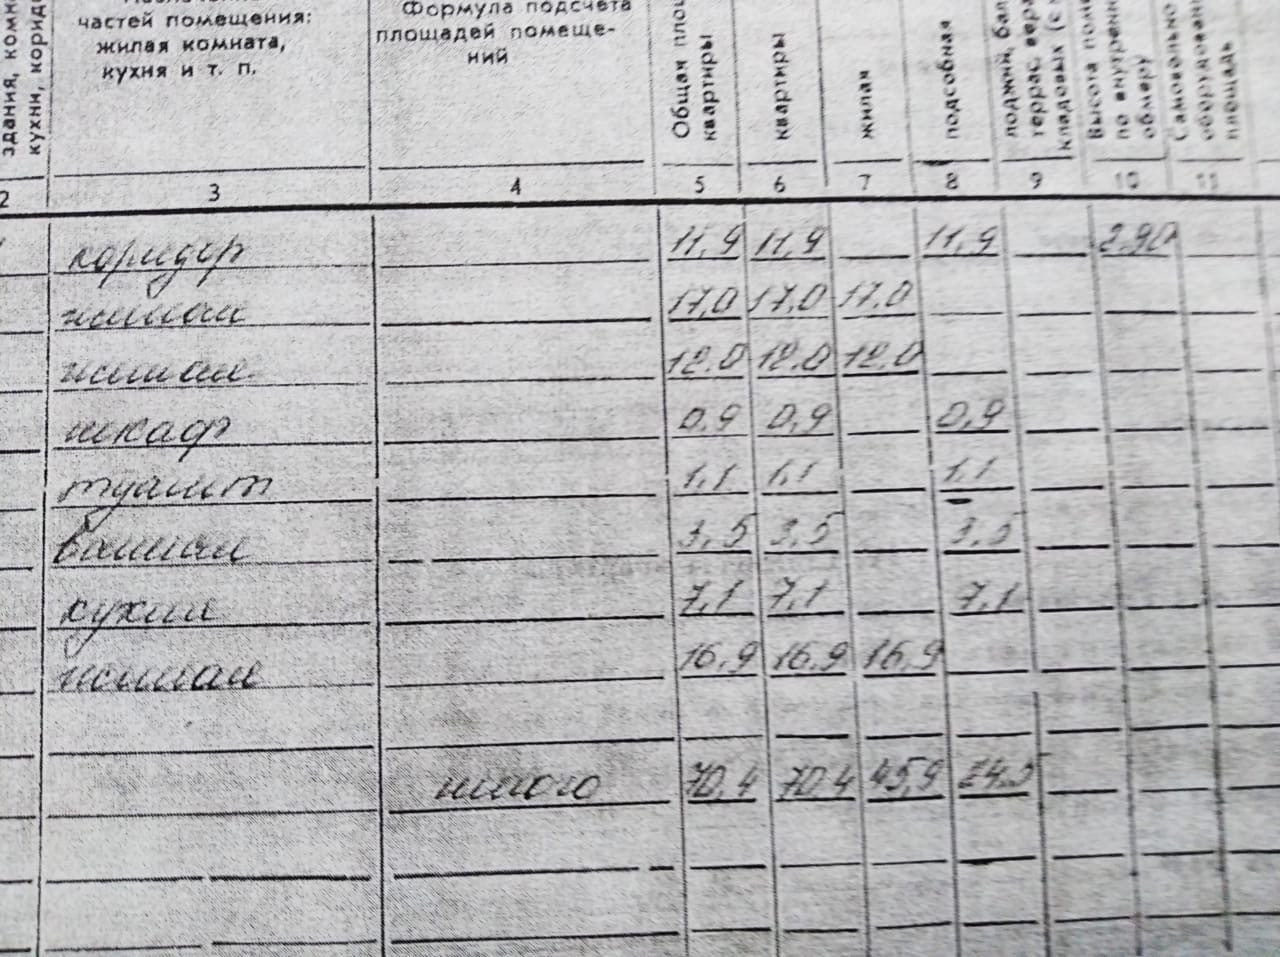 здания, комн
кухни, корид
частей помещения:
жилая комната,
кухня и т. п.
Формула подсчета
площадей помеще-
ний
Общая площ
квартиры
квартиры
жилая
подсобная
лоджий, бал
террас, вера
кладовых (с к
Высота поме
по внутренн
обмеру
Самовольно
оборудован
площадь
2 3 4 5 6 7 8 9 10 11
коридор 11,9 11,9 11,9 2.90
жилая 17,0 17,0 17,0
жилая 12.0 12.0 12.0
шкаф 0,9 0,9 0,9
туалет 1,1 1,1 1,1
ванная 3,5 3,5 3,5
кухня 7,1 7,1 7,1
жилая 16,9 16,9 16,9
итого 70,4 70,4 45,9 24.5